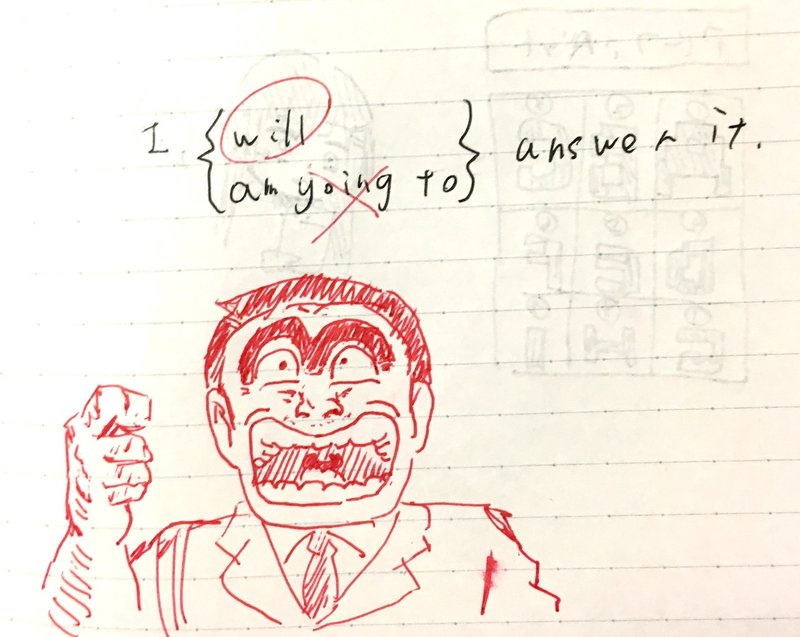 I { will
am going to } answer it.